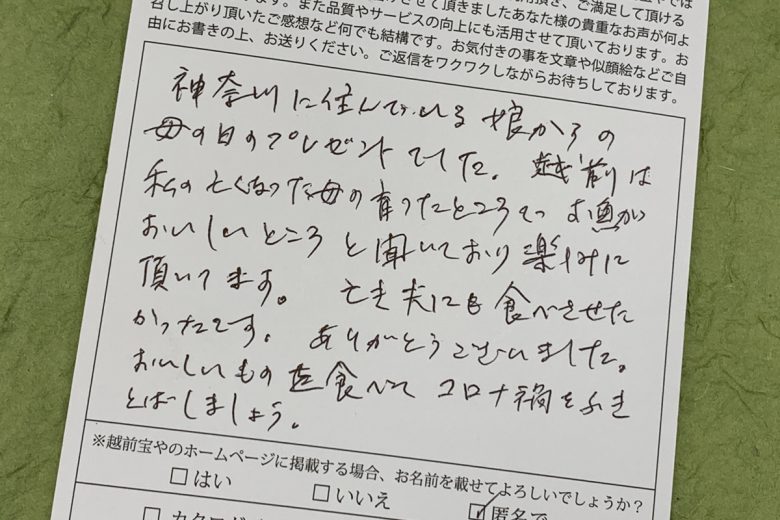 召し上がり頂いたご感想など何でも結構です。お気付きの事を文章や似顔絵などご自
由にお書きの上、お送りください。ご返信をワクワクしながらお待ちしております。
神奈川に住んでいる娘からの
母の日のプレゼントでした。越前は
私の亡くなった母の育ったところでお魚が
おいしいところと聞いており楽しみに
頂いてます。亡き夫にも食べさせた
かったです。ありがとうございました。
おいしいものを食べてコロナ禍をふき
とばしましょう。
※越前宝やのホームページに掲載する場合、お名前を載せてよろしいでしょうか？
はい いいえ 匿名で